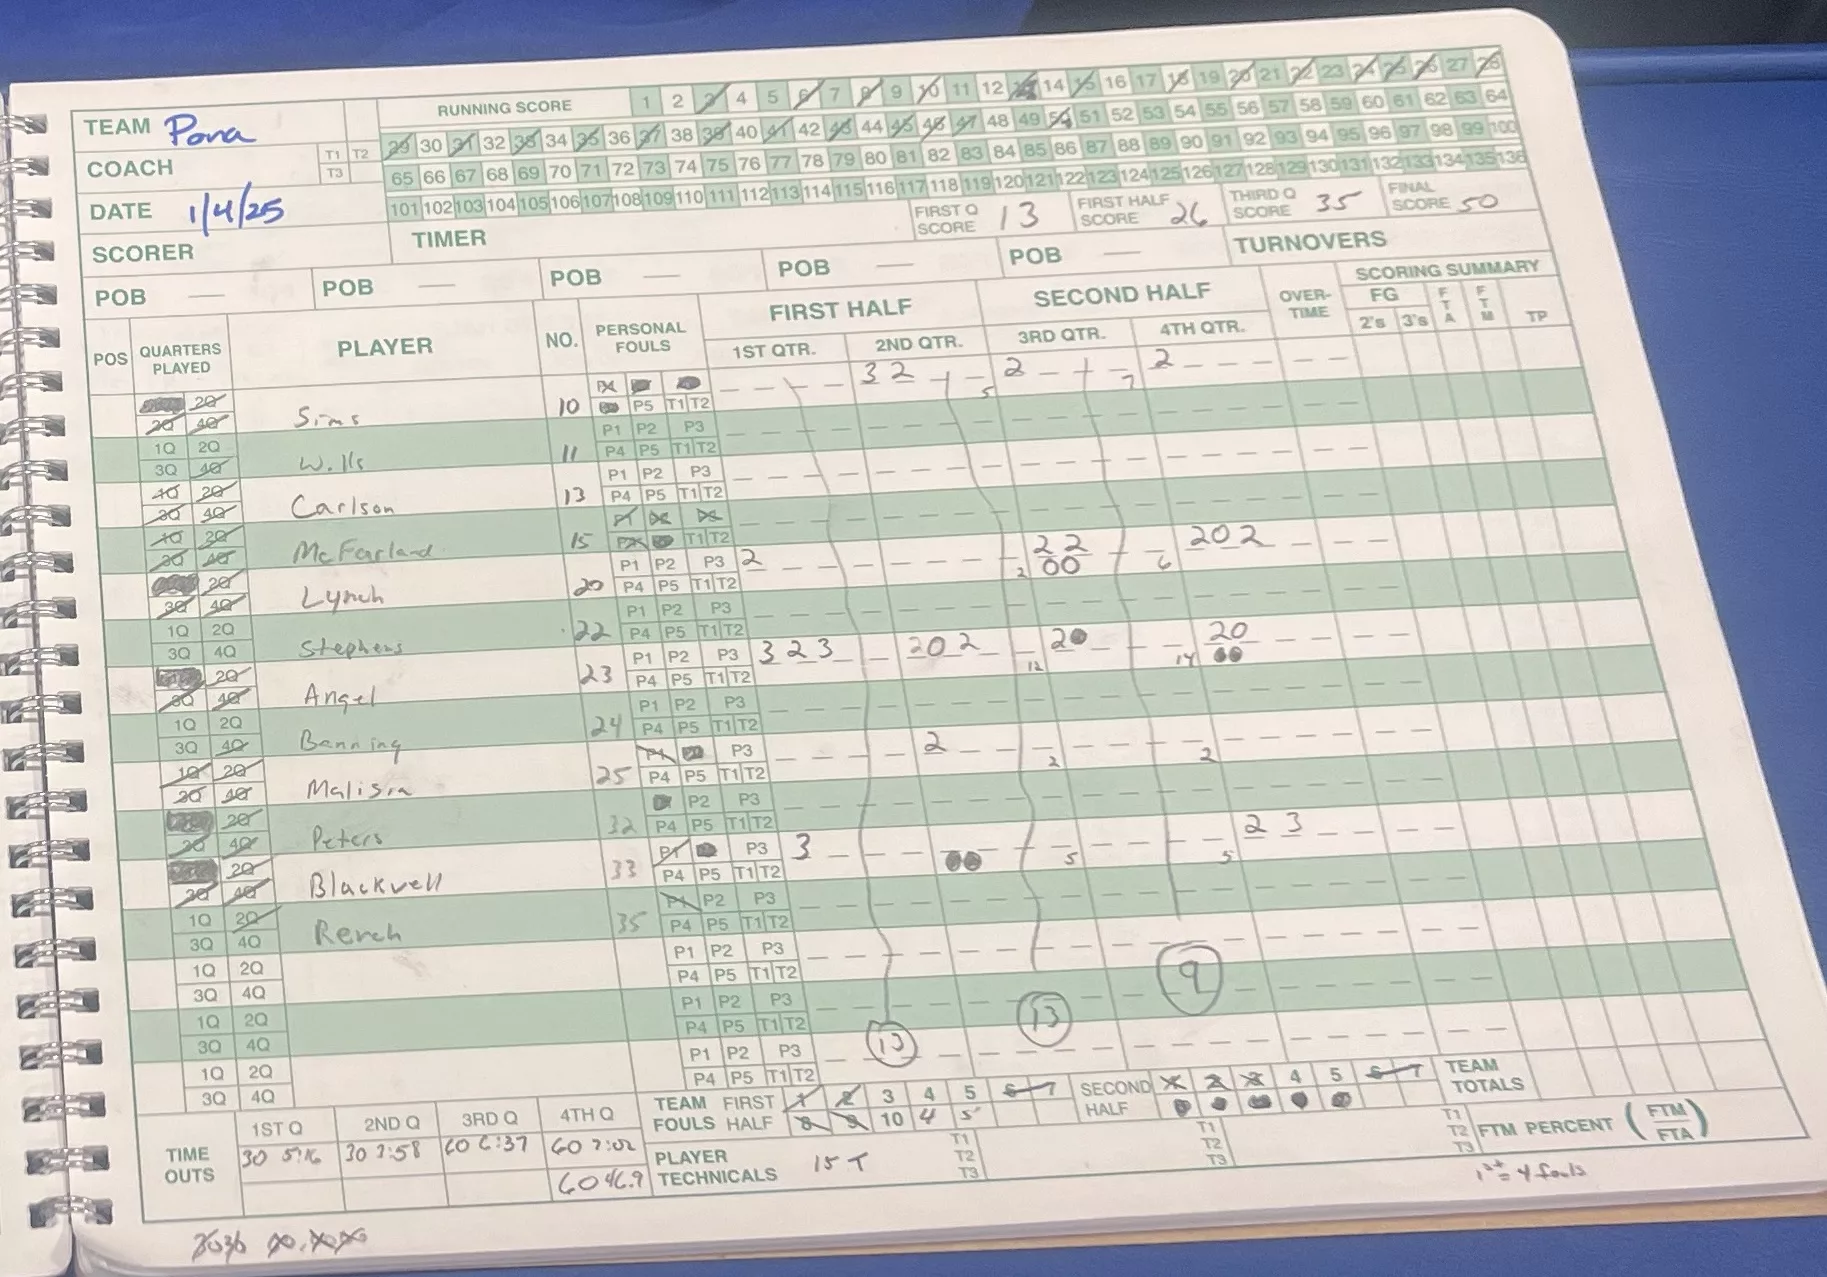 RUNNING SCORE 1 2 3 4 5 6 7 8 9 10 11 12 13 14 15 16 17 18 19 20 21 22 23 24 25 26 27 28
TEAM Pana
29 30 31 32 33 34 35 36 37 38 39 40 41 42 43 44 45 46 47 48 49 50 51 52 53 54 55 56 57 58 59 60 61 62 63 64
COACH T1 T2 T3
65 66 67 68 69 70 71 72 73 74 75 76 77 78 79 80 81 82 83 84 85 86 87 88 89 90 91 92 93 94 95 96 97 98 99 100
DATE 1/4/25
101 102 103 104 105 106 107 108 109 110 111 112 113 114 115 116 117 118 119 120 121 122 123 124 125 126 127 128 129 130 131 132 133 134 135 136
SCORER TIMER FIRST Q SCORE 13 FIRST HALF SCORE 26 THIRD Q SCORE 35 FINAL SCORE 50
POB — POB — POB — POB — POB — TURNOVERS
POS QUARTERS PLAYED PLAYER NO. PERSONAL FOULS FIRST HALF SECOND HALF OVER-TIME SCORING SUMMARY
1ST QTR. 2ND QTR. 3RD QTR. 4TH QTR. FG 2's 3's FTA FTM TP
2Q 3Q 4Q Sims 10 P5 T1 T2 3 2 5 2 7 2
1Q 2Q 3Q 4Q Wills 11 P1 P2 P3 P4 P5 T1 T2
1Q 2Q 3Q 4Q Carlson 13 P1 P2 P3 P4 P5 T1 T2
1Q 2Q 3Q 4Q McFarland 15 P1 P2 P3 P4 T1 T2
2Q 3Q 4Q Lynch 20 P1 P2 P3 P4 P5 T1 T2 2 2 2 2 00 6 2 0 2
1Q 2Q 3Q 4Q Stephens 22 P1 P2 P3 P4 P5 T1 T2
2Q 3Q 4Q Angel 23 P1 P2 P3 P4 P5 T1 T2 3 2 3 2 0 2 12 2 14 2 0
1Q 2Q 3Q 4Q Banning 24 P1 P2 P3 P4 P5 T1 T2
1Q 2Q 3Q 4Q Malisia 25 P1 P3 P4 P5 T1 T2 2 2 2
2Q 3Q 4Q Peters 32 P2 P3 P4 P5 T1 T2
2Q 3Q 4Q Blackwell 33 P1 P3 P4 P5 T1 T2 3 5 5 2 3
1Q 2Q 3Q 4Q Rerch 35 P1 P2 P3 P4 P5 T1 T2
1Q 2Q 3Q 4Q P1 P2 P3 P4 P5 T1 T2
1Q 2Q 3Q 4Q P1 P2 P3 P4 P5 T1 T2
1Q 2Q 3Q 4Q P1 P2 P3 P4 P5 T1 T2
13 13 9
TEAM FOULS FIRST HALF 1 2 3 4 5 6 7 8 9 10 4 5 SECOND HALF 1 2 3 4 5 6 7 TEAM TOTALS
TIME OUTS 1ST Q 2ND Q 3RD Q 4TH Q
30 5:16 30 2:58 60 6:37 60 7:02
60 46.9
PLAYER TECHNICALS 15 T T1 T2 T3 T1 T2 T3 T1 T2 T3 FTM PERCENT (FTM/FTA)
1st = 4 fouls